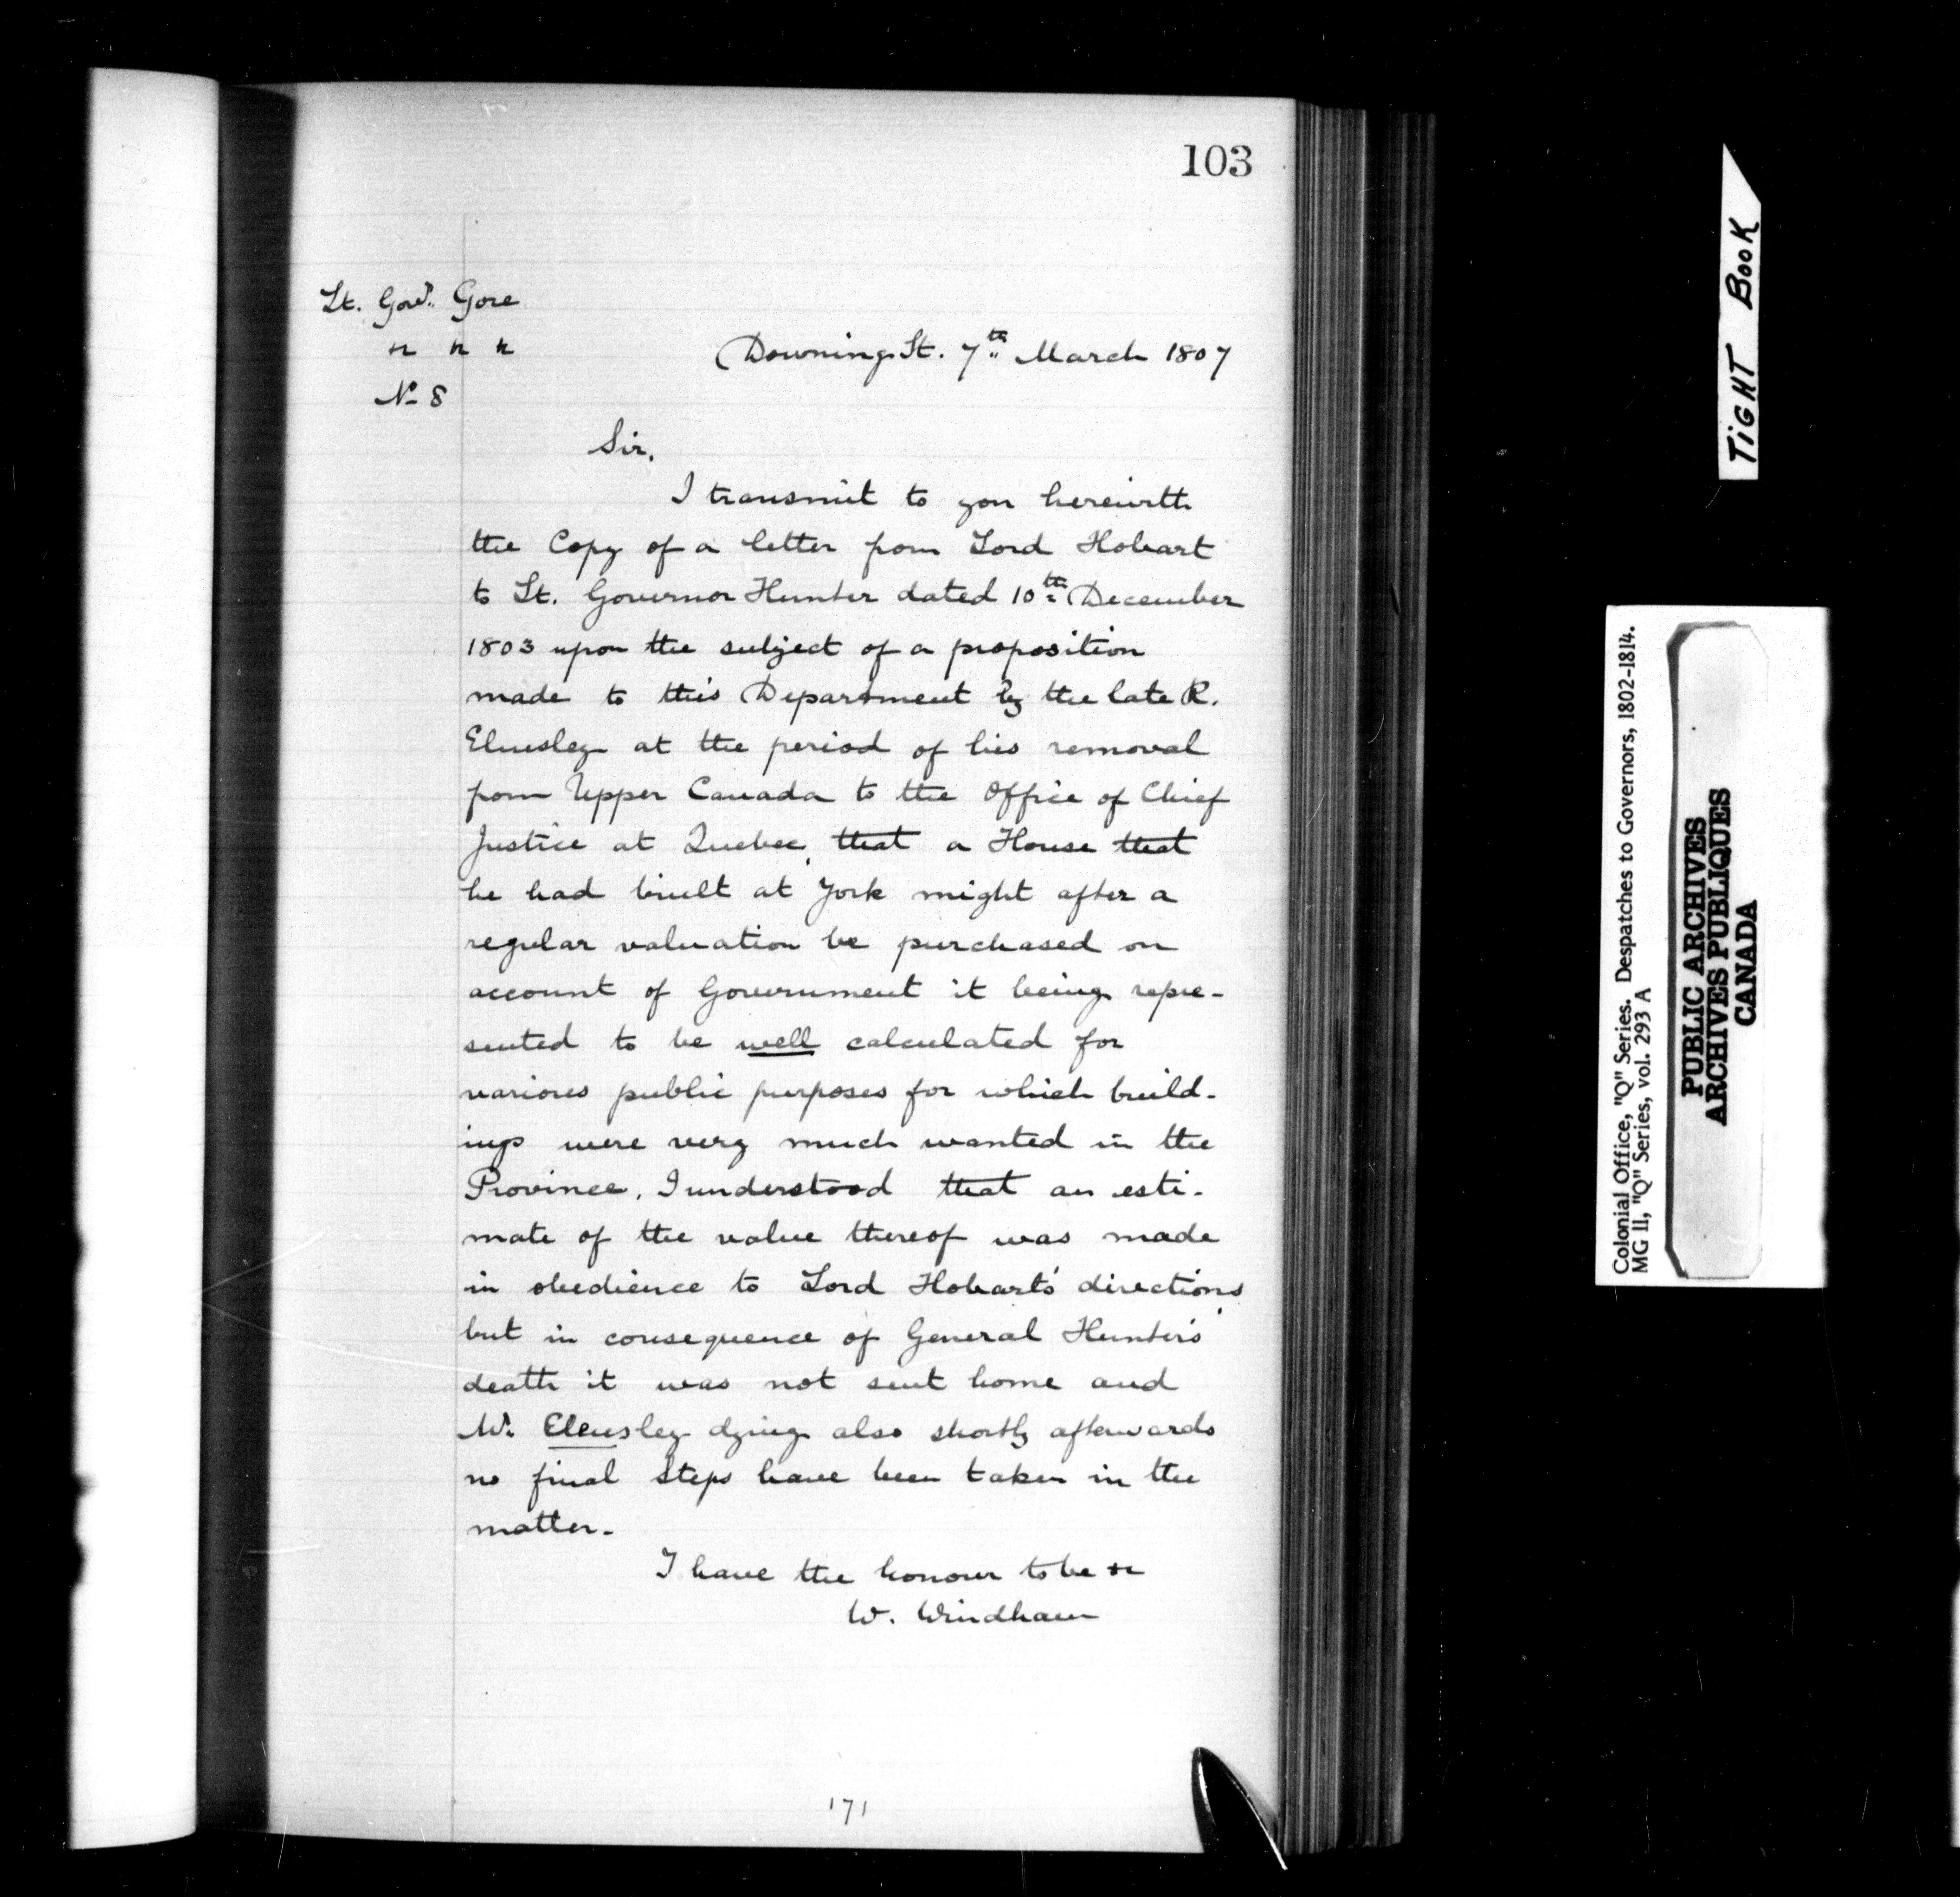 103
Lt. Govr. Gore
&c &c &c
No 8
Downing St. 7th March 1807
Sir,
I transmit to you herewith
the Copy of a letter from Lord Hobart
to Lt. Governor Hunter dated 10th December
1803 upon the subject of a proposition
made to this Department by the late R.
Elmsley at the period of his removal
from Upper Canada to the Office of Chief
Justice at Quebec, that a House that
he had built at York might after a
regular valuation be purchased on
account of Government it being repre-
sented to be well calculated for
various public purposes for which build-
ings were very much wanted in the
Province. I understood that an esti-
mate of the value thereof was made
in obedience to Lord Hobart's directions,
but in consequence of General Hunter's
death it was not sent home and
Mr. Elmsley dying also shortly afterwards
no final Steps have been taken in the
matter.
I have the honour to be &c
W. Windham
171
TIGHT BOOK
Colonial Office, "Q" Series. Despatches to Governors, 1802-1814.
MG 11, "Q" Series, vol. 293 A
PUBLIC ARCHIVES
ARCHIVES PUBLIQUES
CANADA